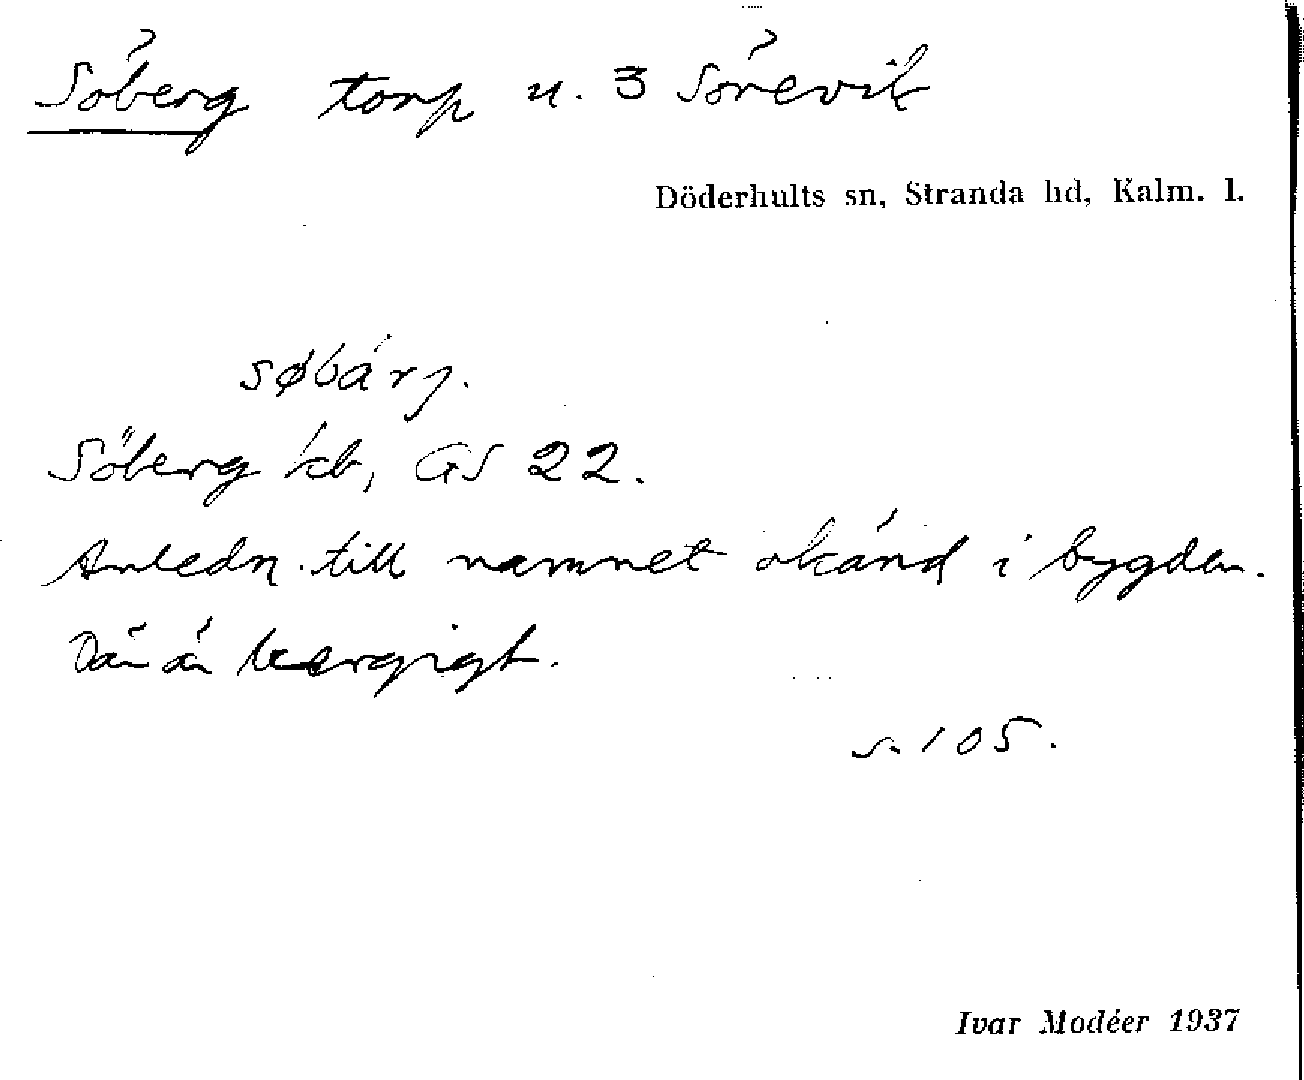 Söberg torp u. 3 Sörevik
Döderhults sn, Stranda hd, Kalm. l.
søbárj.
Söberg kb, GS 22.
Anledn. till namnet okänd i bygden.
Där är bergigt.
s. 105.
Ivar Modéer 1937